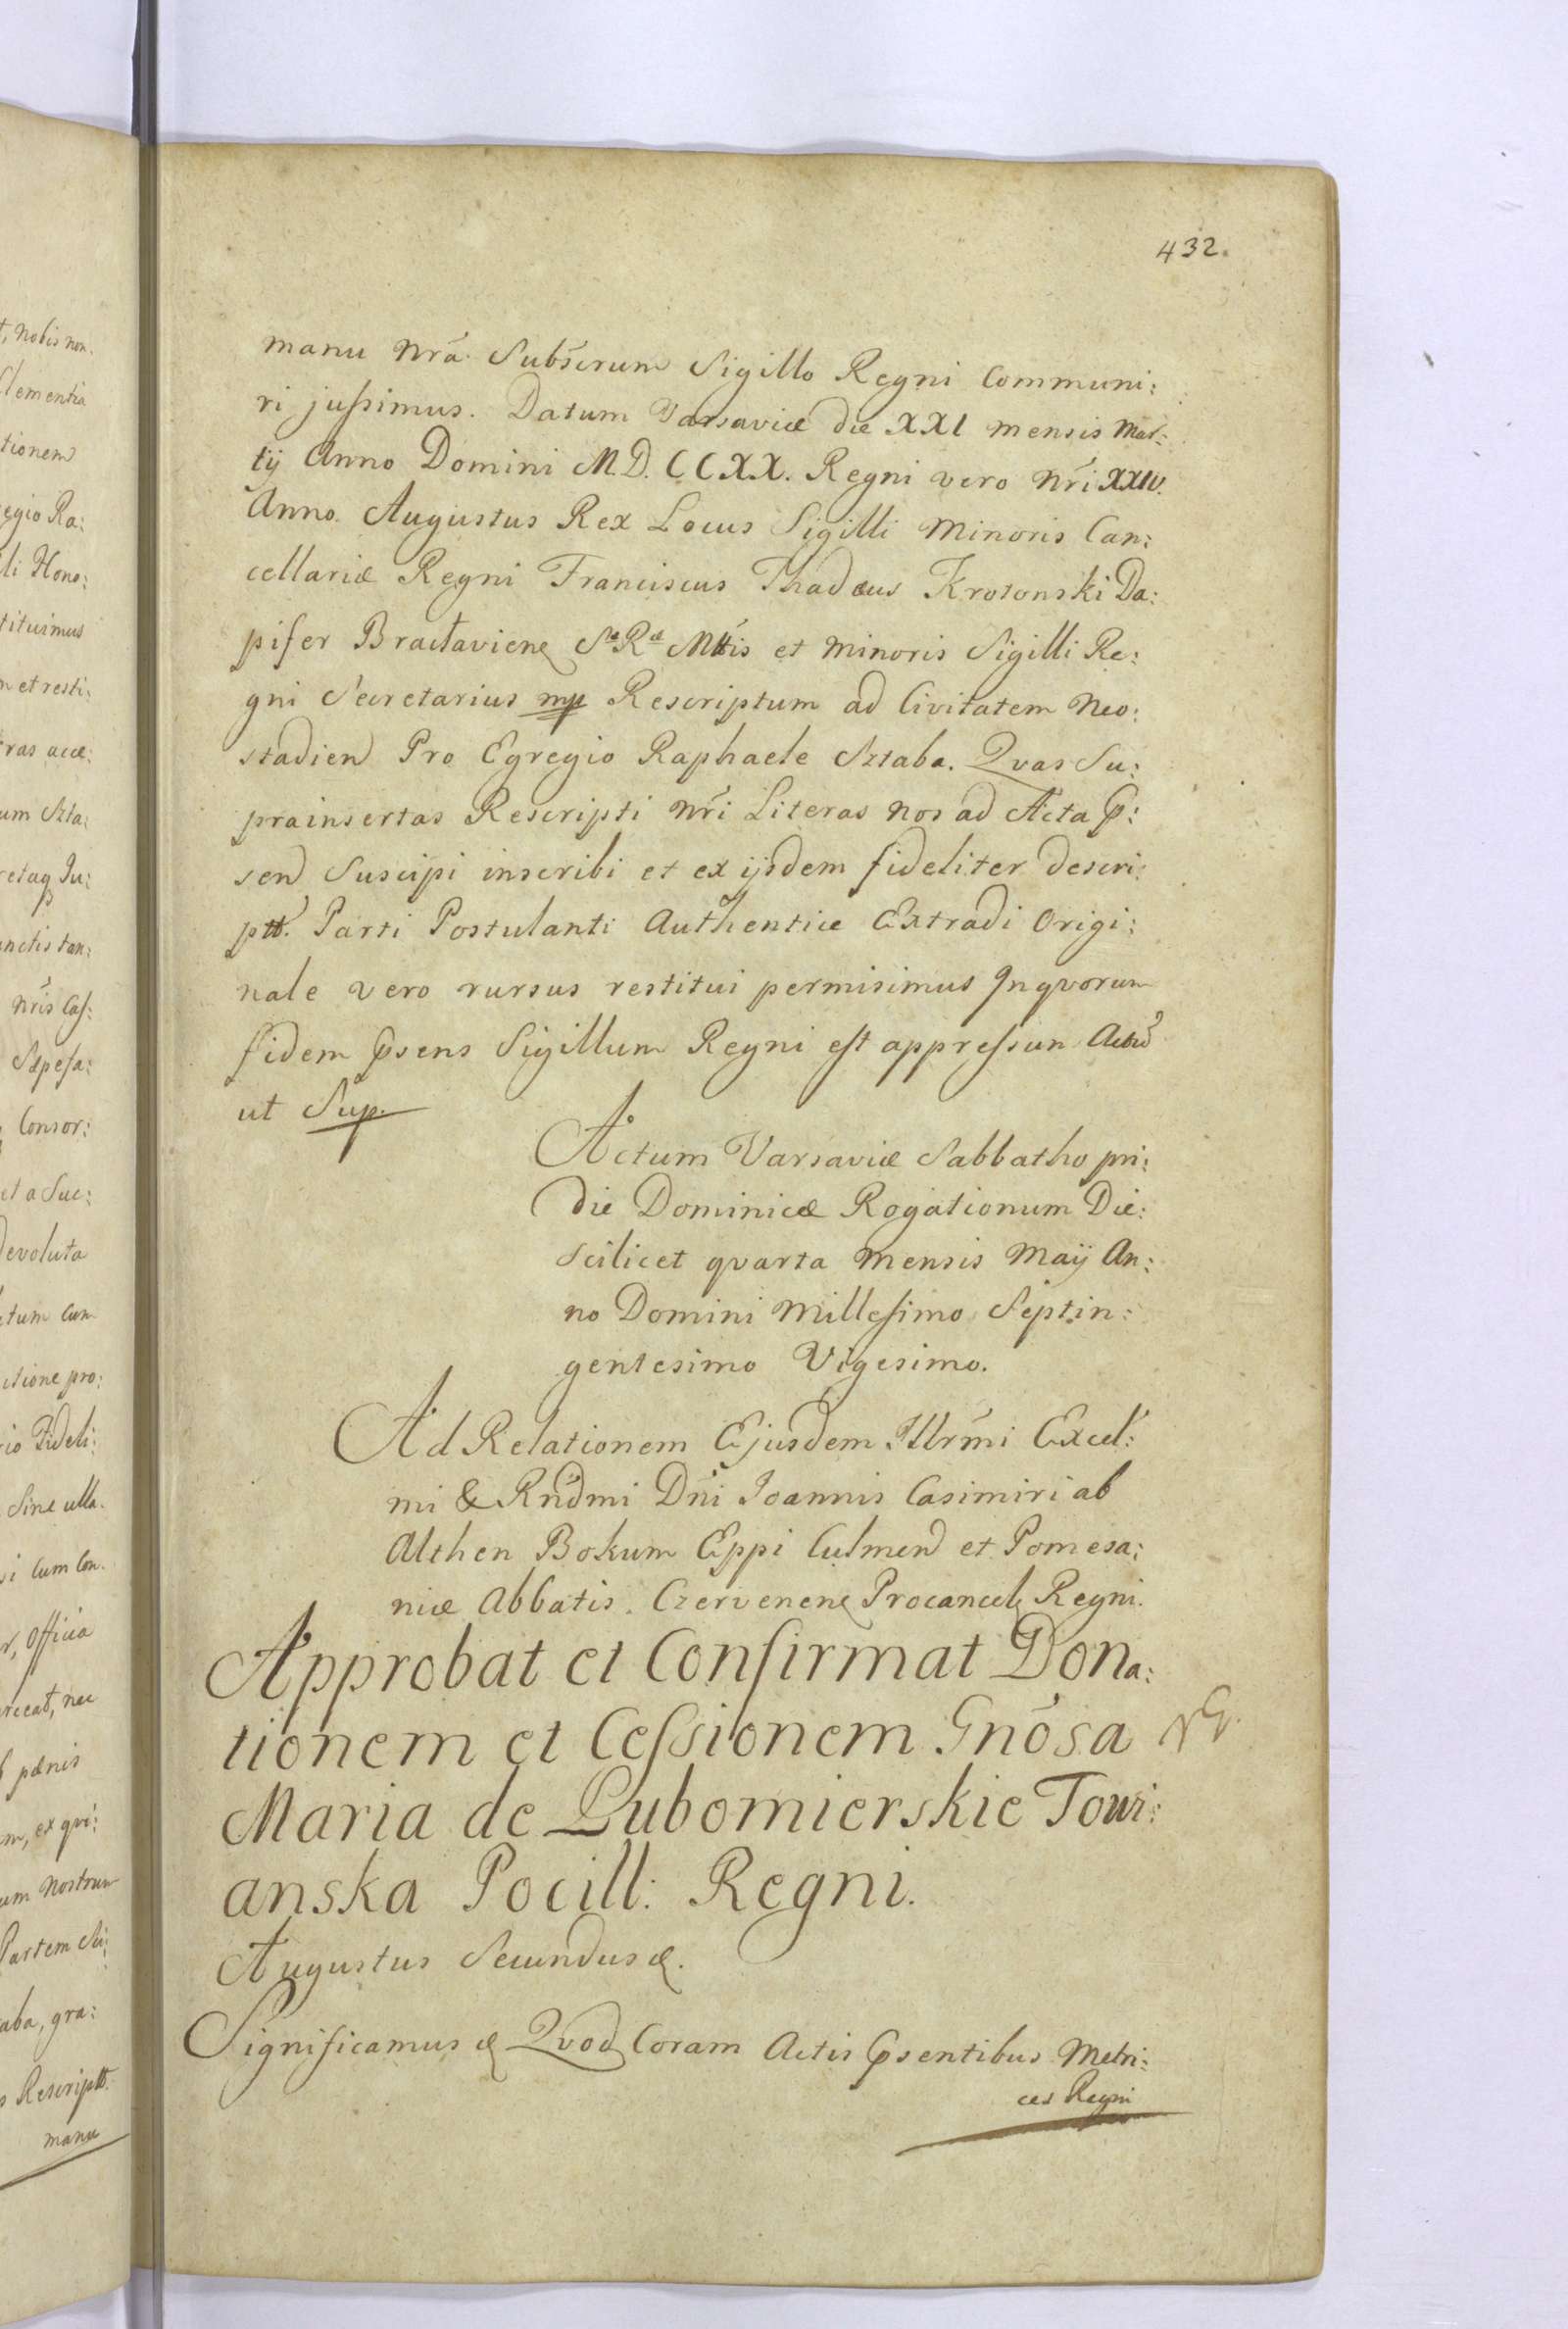 432.
manu nrá Subścrum Sigillo Regni Communi:
ri jussimus. Datum Varsaviæ die XXI mensis Mar:
tij Anno Domini M.D.CCXX. Regni vero nri XXIV.
Anno. Augustus Rex Locus Sigilli Minoris Can:
cellariæ Regni Franciscus Thadæus Krotonski Da:
pifer Bractaviens Sæ Ræ Mttis et minoris Sigilli Re:
gni Secretarius mp Rescriptum ad Civitatem Neo:
stadien Pro Egregio Raphaele Sztaba. Qvas Su:
prainsertas Rescripti nri Literas nos ad Acta p:
sen Suscipi inscribi et ex ijsdem fideliter descri:
ptt. Parti Postulanti Authentice Extradi Origi:
nale vero rursus restitui permisimus Inqvorum
fidem psens Sigillum Regni est appressun Actu
ut Sup.
Actum Varsaviæ Sabbatho pri:
die Dominicæ Rogationum Die:
scilicet qvarta mensis Maij An:
no Domini Millesimo Septin:
gentesimo Vigesimo.
Ad Relationem Ejusdem Illrmi Excel:
mi & Rndmi Dni Joannis Casimiri ab
Althen Bokum Eppi Culmen et Pomesa:
niæ Abbatis. Czervenens Procancel Regni.
Approbat et Confirmat Dona:
tionem et Cessionem Gnósa
Maria de Lubomierskie Towi:
anska Pocill: Regni.
Augustus Secundus &.
Significamus & Qvod Coram Actis psentibus Metri:
ces Regni